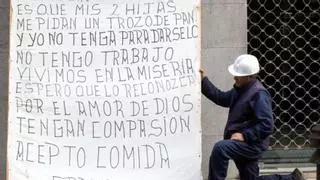 ES QUE MIS 2 HIJAS
ME PIDAN UN TROZO DE PAN
Y YO NO TENGA PARA DARSELO
NO TENGO TRABAJO
VIVIMOS EN LA MISERIA
ESPERO QUE LO RECONOZCA
POR EL AMOR DE DIOS
TENGAN COMPASION
ACEPTO COMIDA